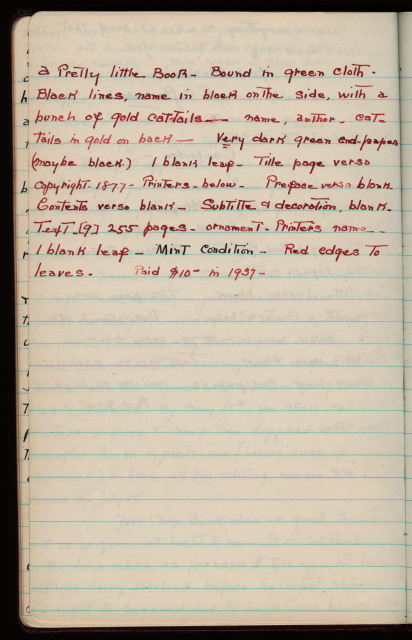 a Pretty little Book - Bound in green cloth -
Black lines, name in black on the side, with a
bunch of gold cattails — name, author - cat-
tails in gold on back — Very dark green end-papers
(maybe black.) 1 blank leaf - Title page verso
copyright. 1877 - Printers - below - Preface verso blank.
Contents verso blank - Subtitle & decoration, blank -
Text [9] 255 pages - ornament - Printers name --
1 blank leaf - Mint Condition - Red edges to
leaves - Paid $10 - in 1937 -